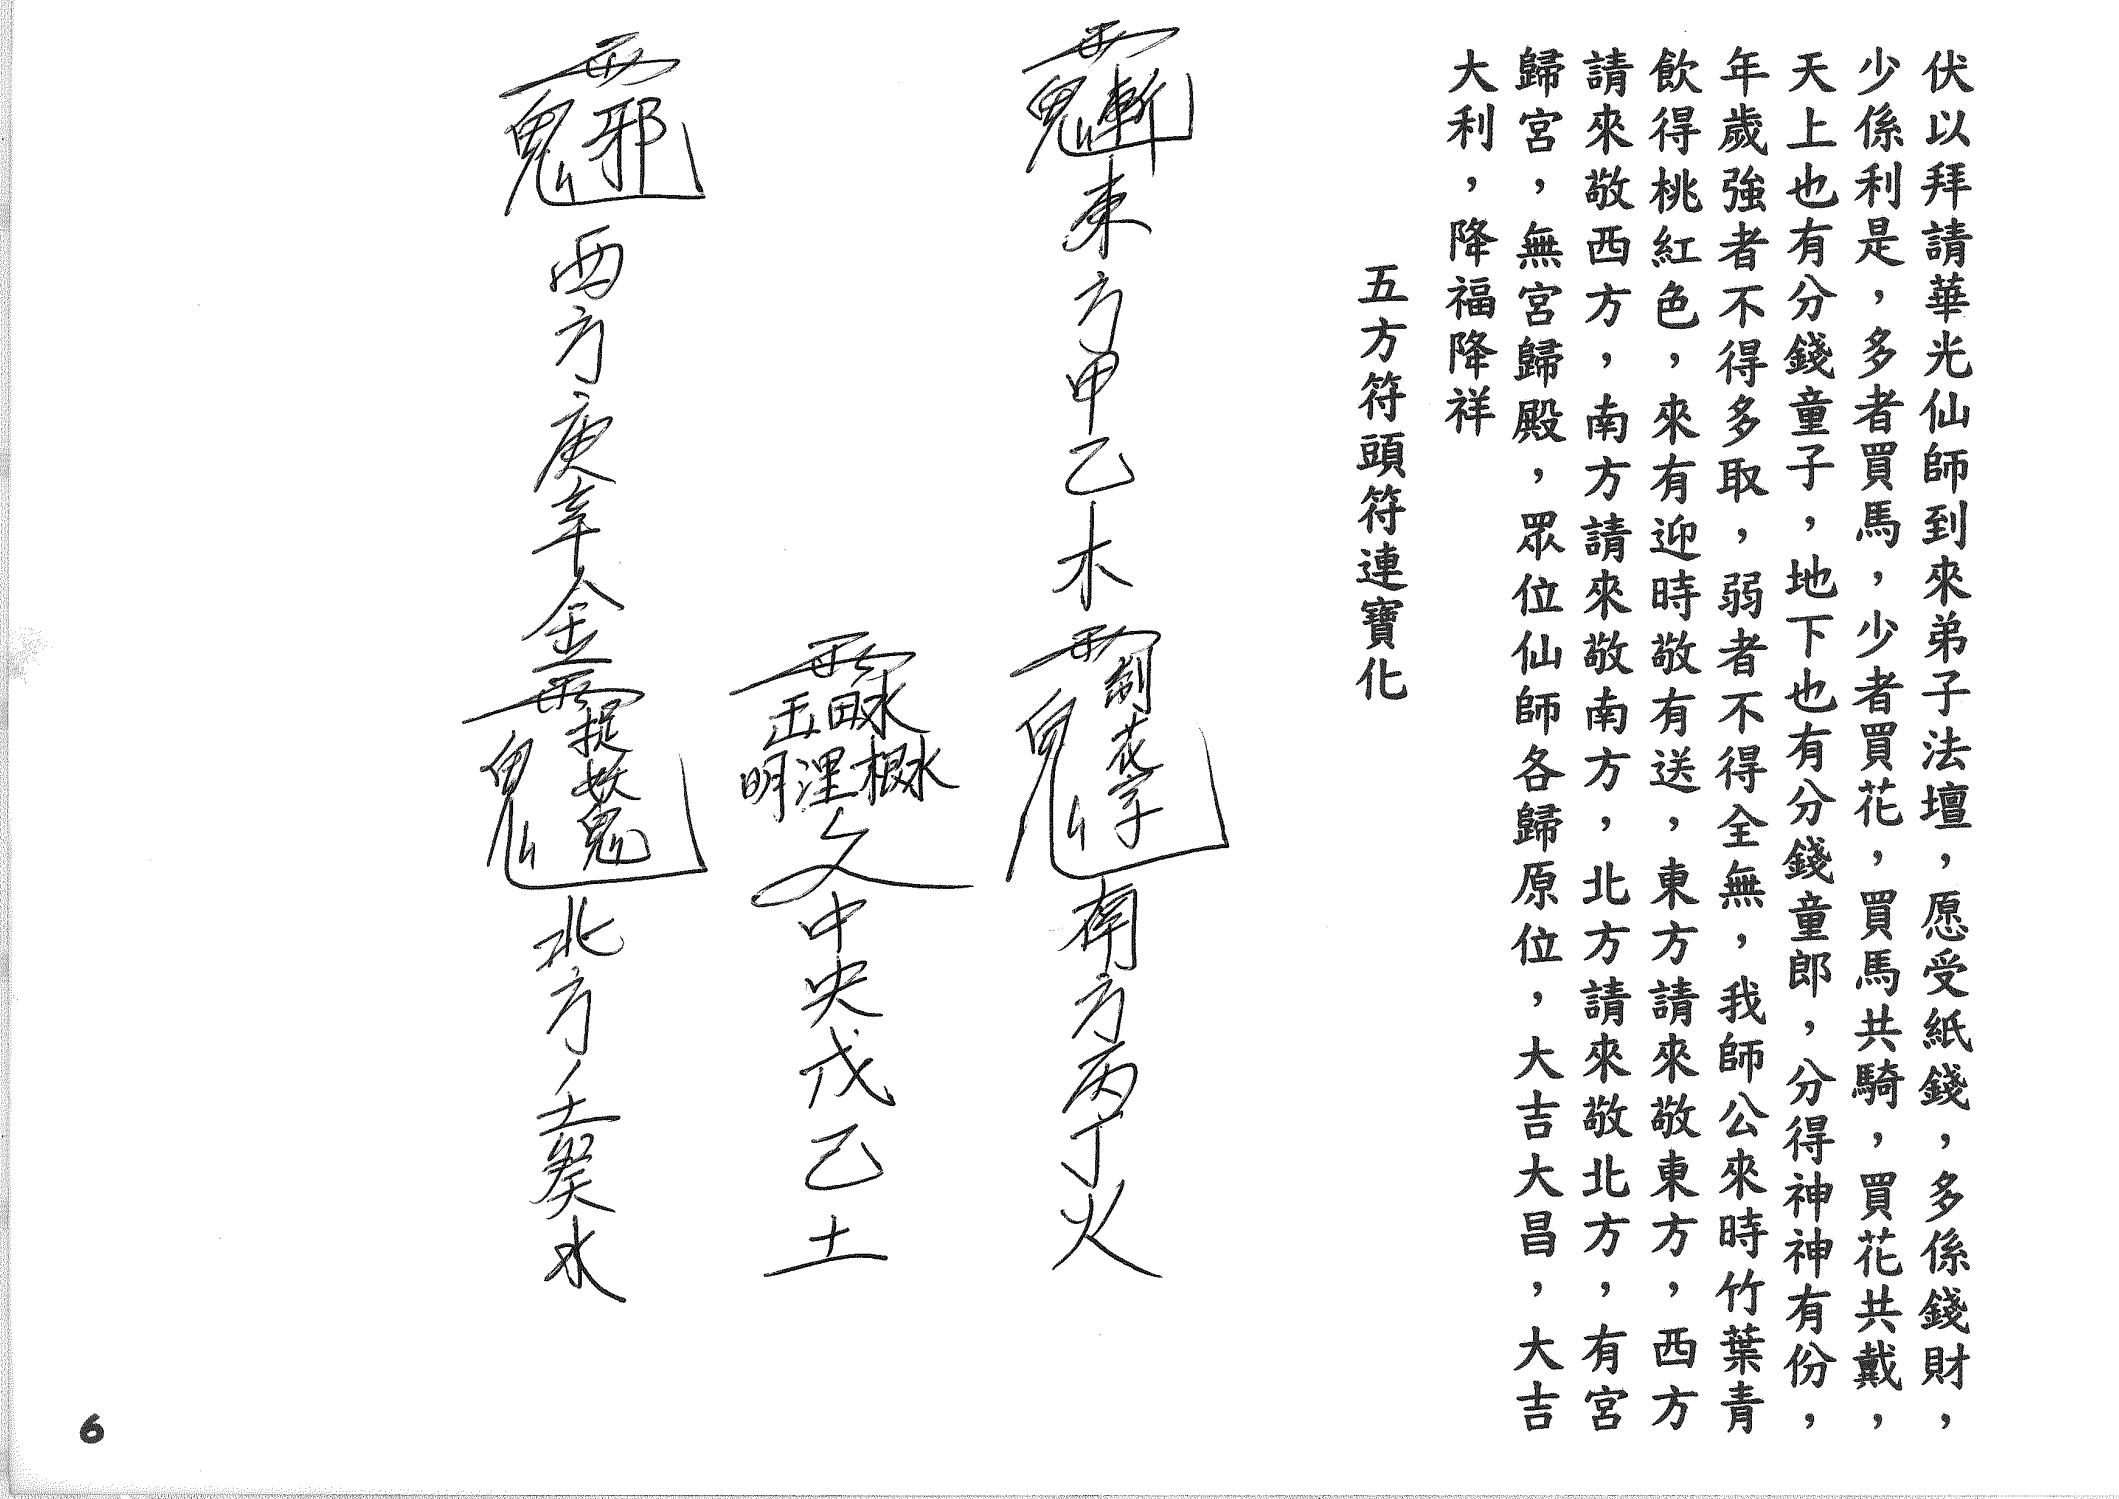 伏以拜請華光仙師到來弟子法壇，愿受紙錢，多係錢財，
少係利是，多者買馬，少者買花，買馬共騎，買花共戴，
天上也有分錢童子，地下也有分錢童郎，分得神神有份，
年歲強者不得多取，弱者不得全無，我師公來時竹葉青
飲得桃紅色，來有迎時敬有送，東方請來敬東方，西方
請來敬西方，南方請來敬南方，北方請來敬北方，有宮
歸宮，無宮歸殿，眾位仙師各歸原位，大吉大昌，大吉
大利，降福降祥
五方符頭符連寶化
鬼斬東方甲乙木
鬼制花字南方丙丁火
中央戊己土
鬼邪西方庚辛金
鬼捉妖鬼北方壬癸水
6